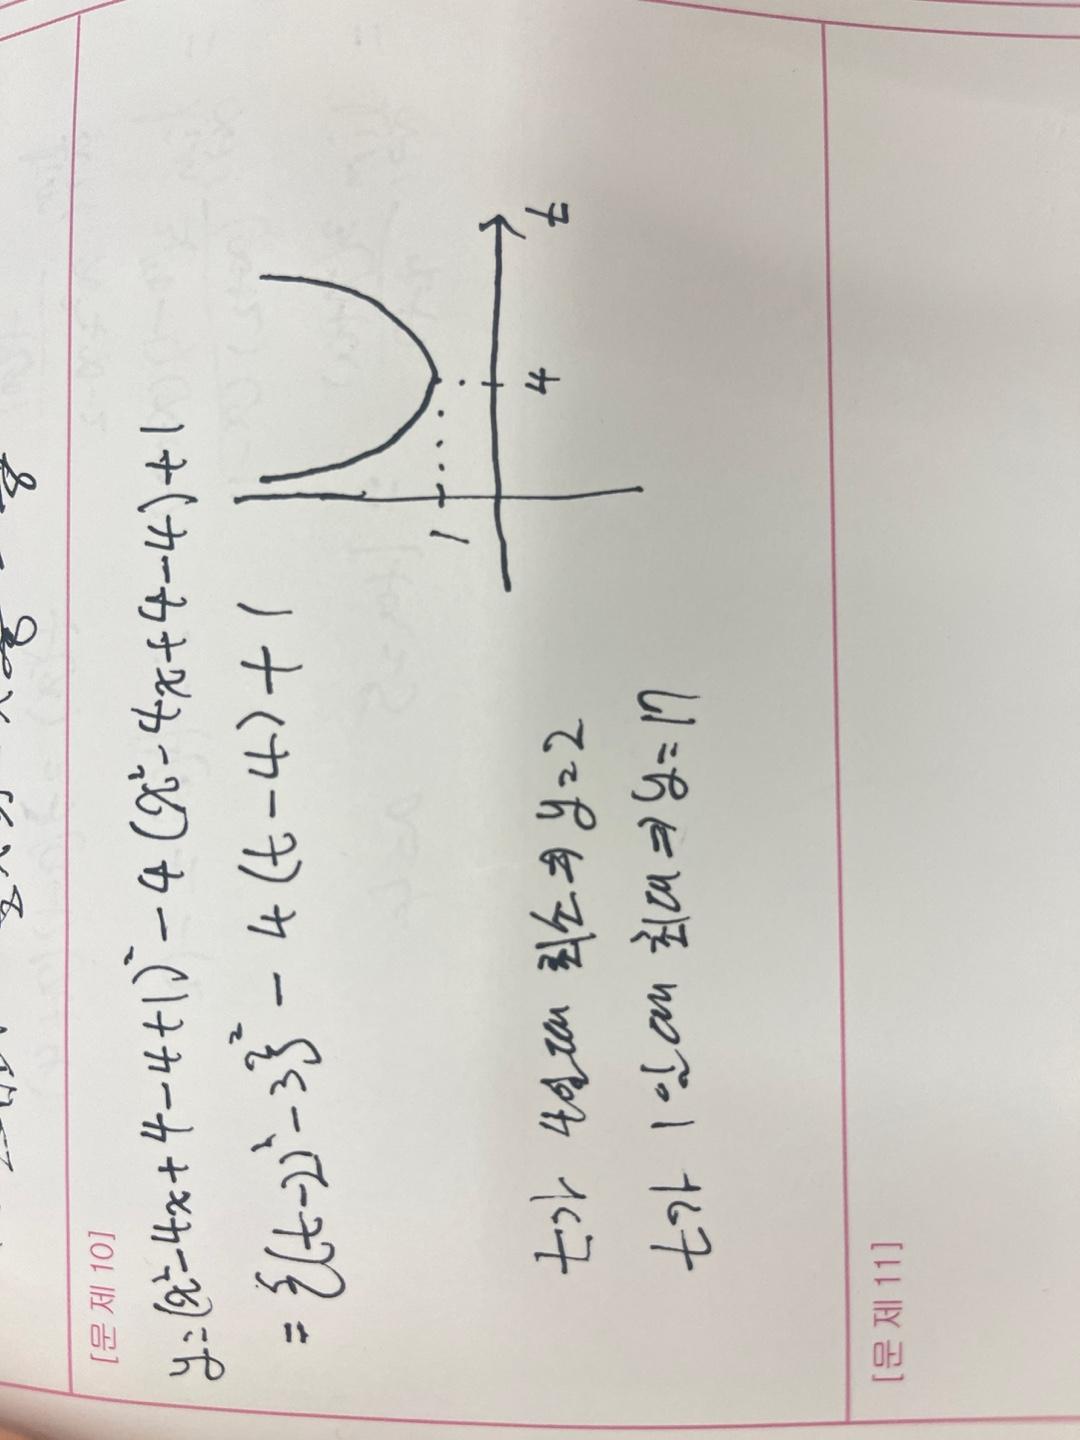 [문 제 10]
y=(x²-4x+4-4+1)²-4(x²-4x+4-4)+1
={(t-2)²-3}²-4(t-4)+1
1
4
t
t가 4일때 최소⇒y=2
t가 1일때 최대⇒y=17
[문 제 11]